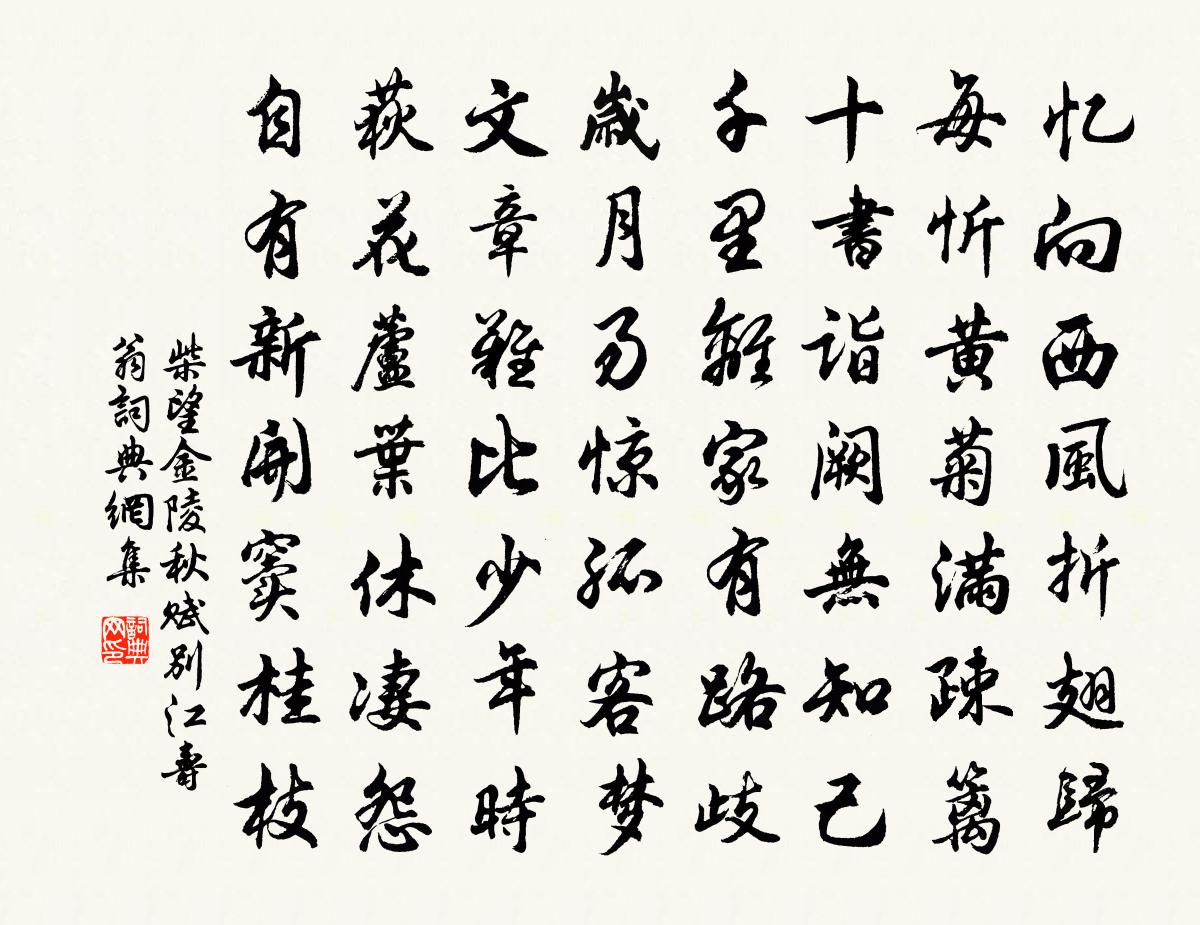 忆向西風折翅歸
每忻黄菊满疎篱
十書詣闕無知己
千里離家有路歧
歲月易惊孤客梦
文章難比少年時
荻花蘆葉休凄怨
自有新開窦桂枝
柴望金陵秋赋別江壽
翁詞典網集
詞典
网印